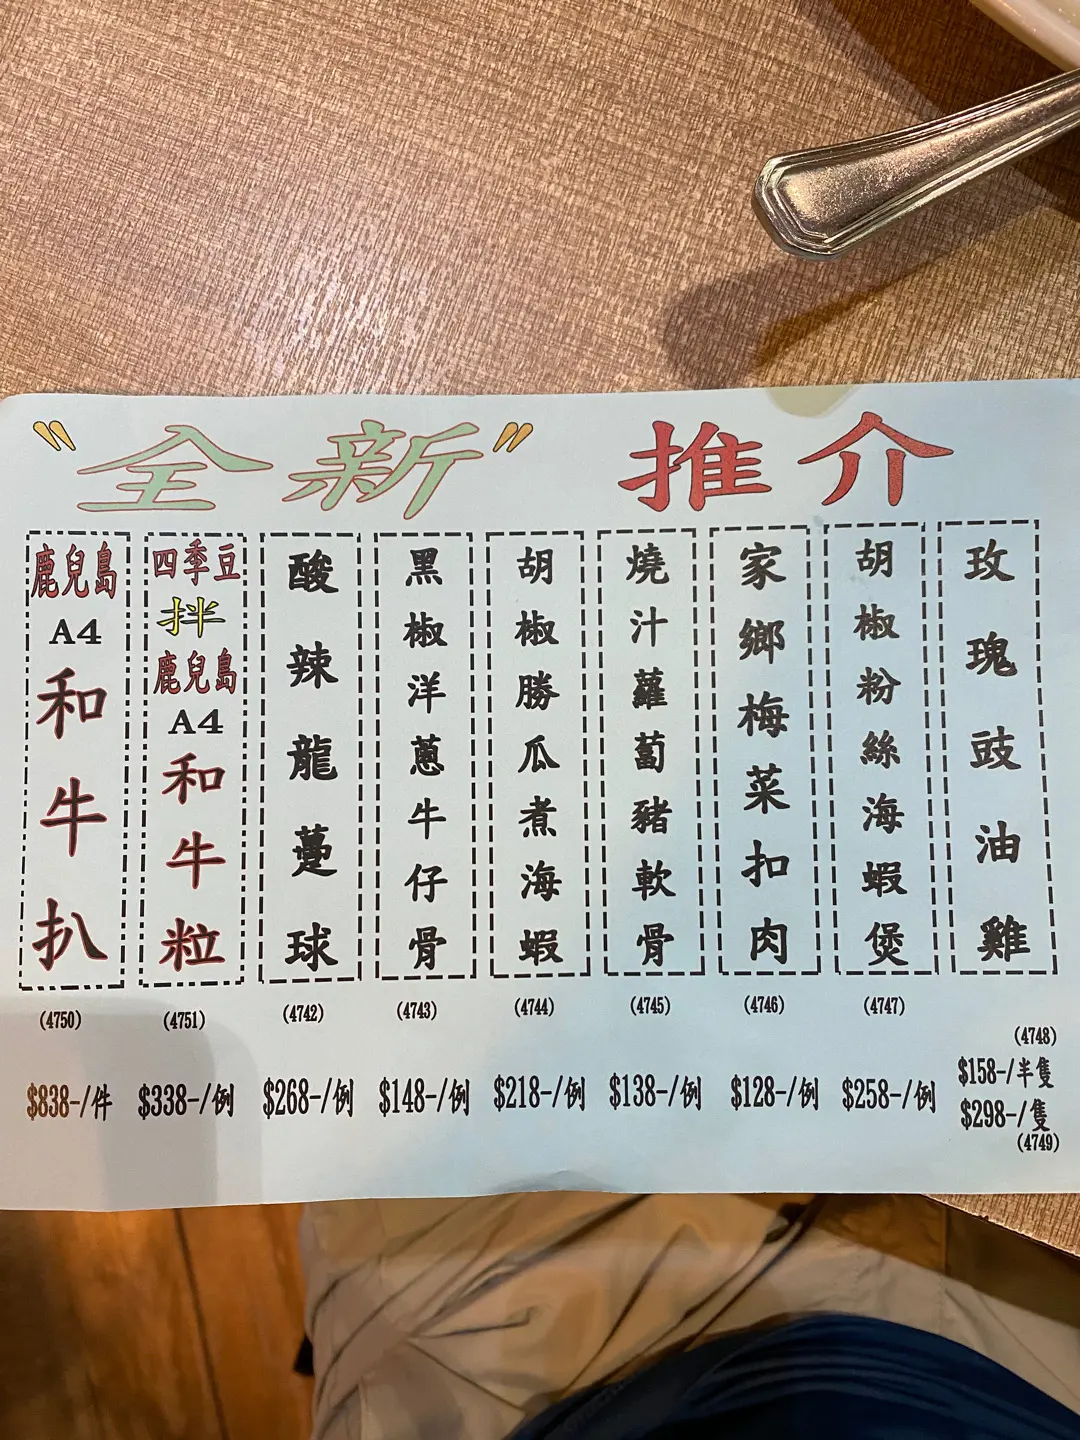 〝全新〞 推介
鹿兒島
A4
和牛扒
(4750)
$838-/件
四季豆
拌
鹿兒島
A4
和牛粒
(4751)
$338-/例
酸辣龍躉球
(4742)
$268-/例
黑椒洋蔥牛仔骨
(4743)
$148-/例
胡椒勝瓜煮海蝦
(4744)
$218-/例
燒汁蘿蔔豬軟骨
(4745)
$138-/例
家鄉梅菜扣肉
(4746)
$128-/例
胡椒粉絲海蝦煲
(4747)
$258-/例
玫瑰豉油雞
(4748)
$158-/半隻
$298-/隻
(4749)